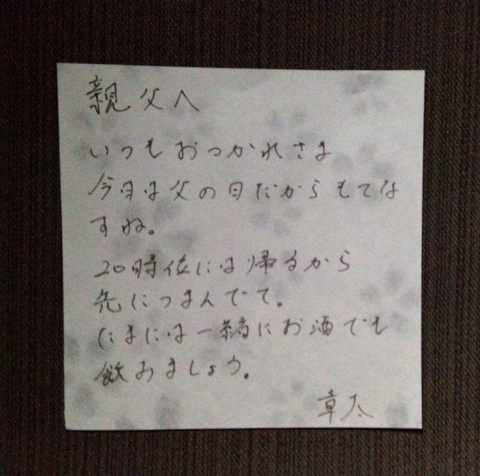 親父へ
いつもおつかれさま
今日は父の日だからもてな
すね。
20時位には帰るから
先につまんでて。
たまには一緒にお酒でも
飲みましょう。
章太